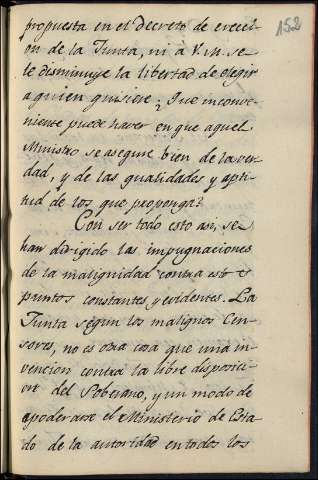 152
propuesta en el decreto de ereccion
on de la Junta, ni à V. M. se
le disminuye la libertad de elegir
a quien quisiere, ¿Que inconve-
niente puede haver en que aquel
Ministro se asegure bien de la ver-
dad, y de las qualidades y apti-
tud de los que proponga?
Con ser todo esto asi, se
han dirigido las impugnaciones
de la malignidad contra estos
puntos constantes y evidentes. La
Junta segun los malignos Cen-
sores, no es otra cosa que una in-
vencion contra la libre disposici-
on del Soberano, y un modo de
apoderarse el Ministerio de Esta-
do de la autoridad en todos los